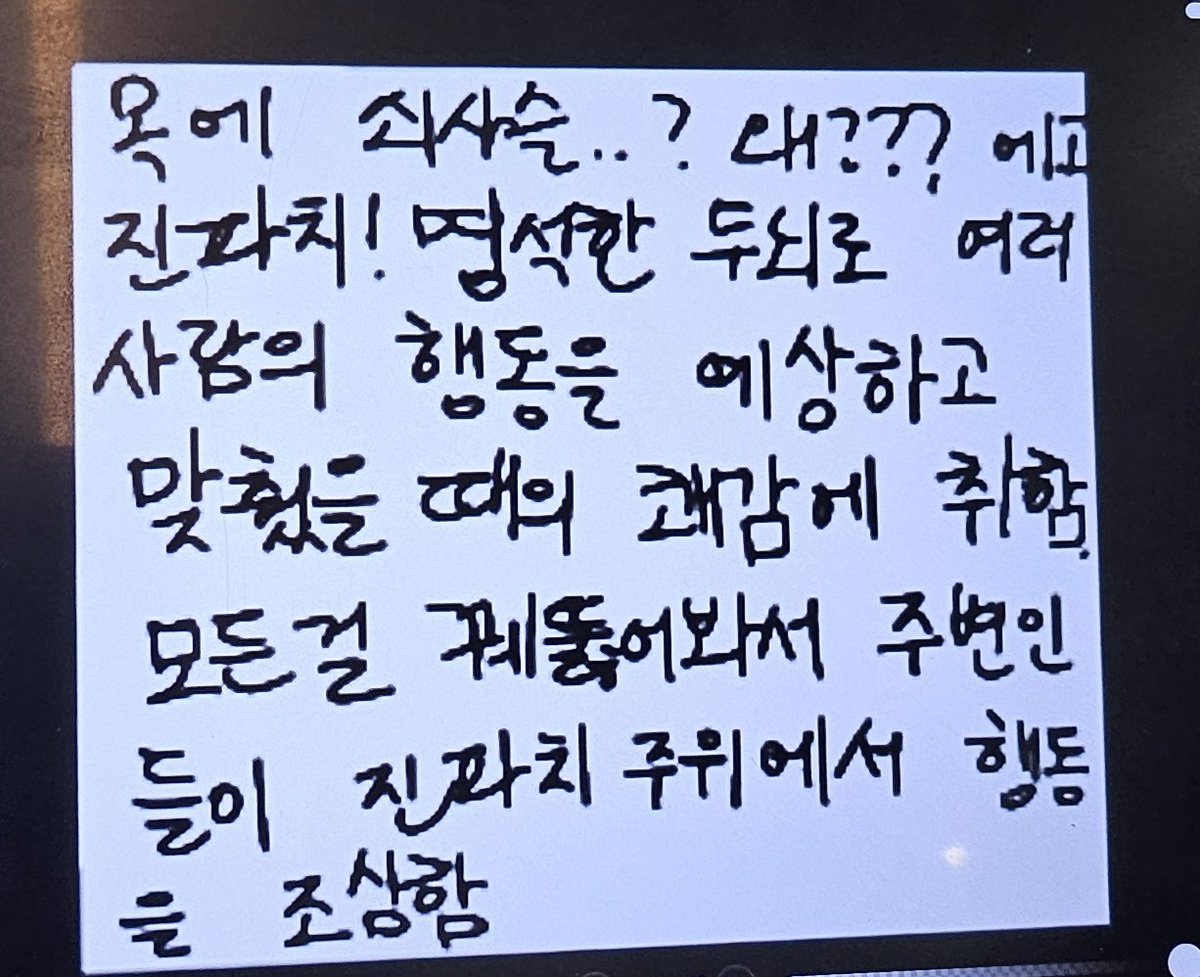 목에 쇠사슬..? 왜??? 에고
진파치! 명석한 두뇌로 여러
사람의 행동을 예상하고
맞췄을 때의 쾌감에 취함.
모든걸 꿰뚫어봐서 주변인
들이 진파치 주위에서 행동
을 조심함